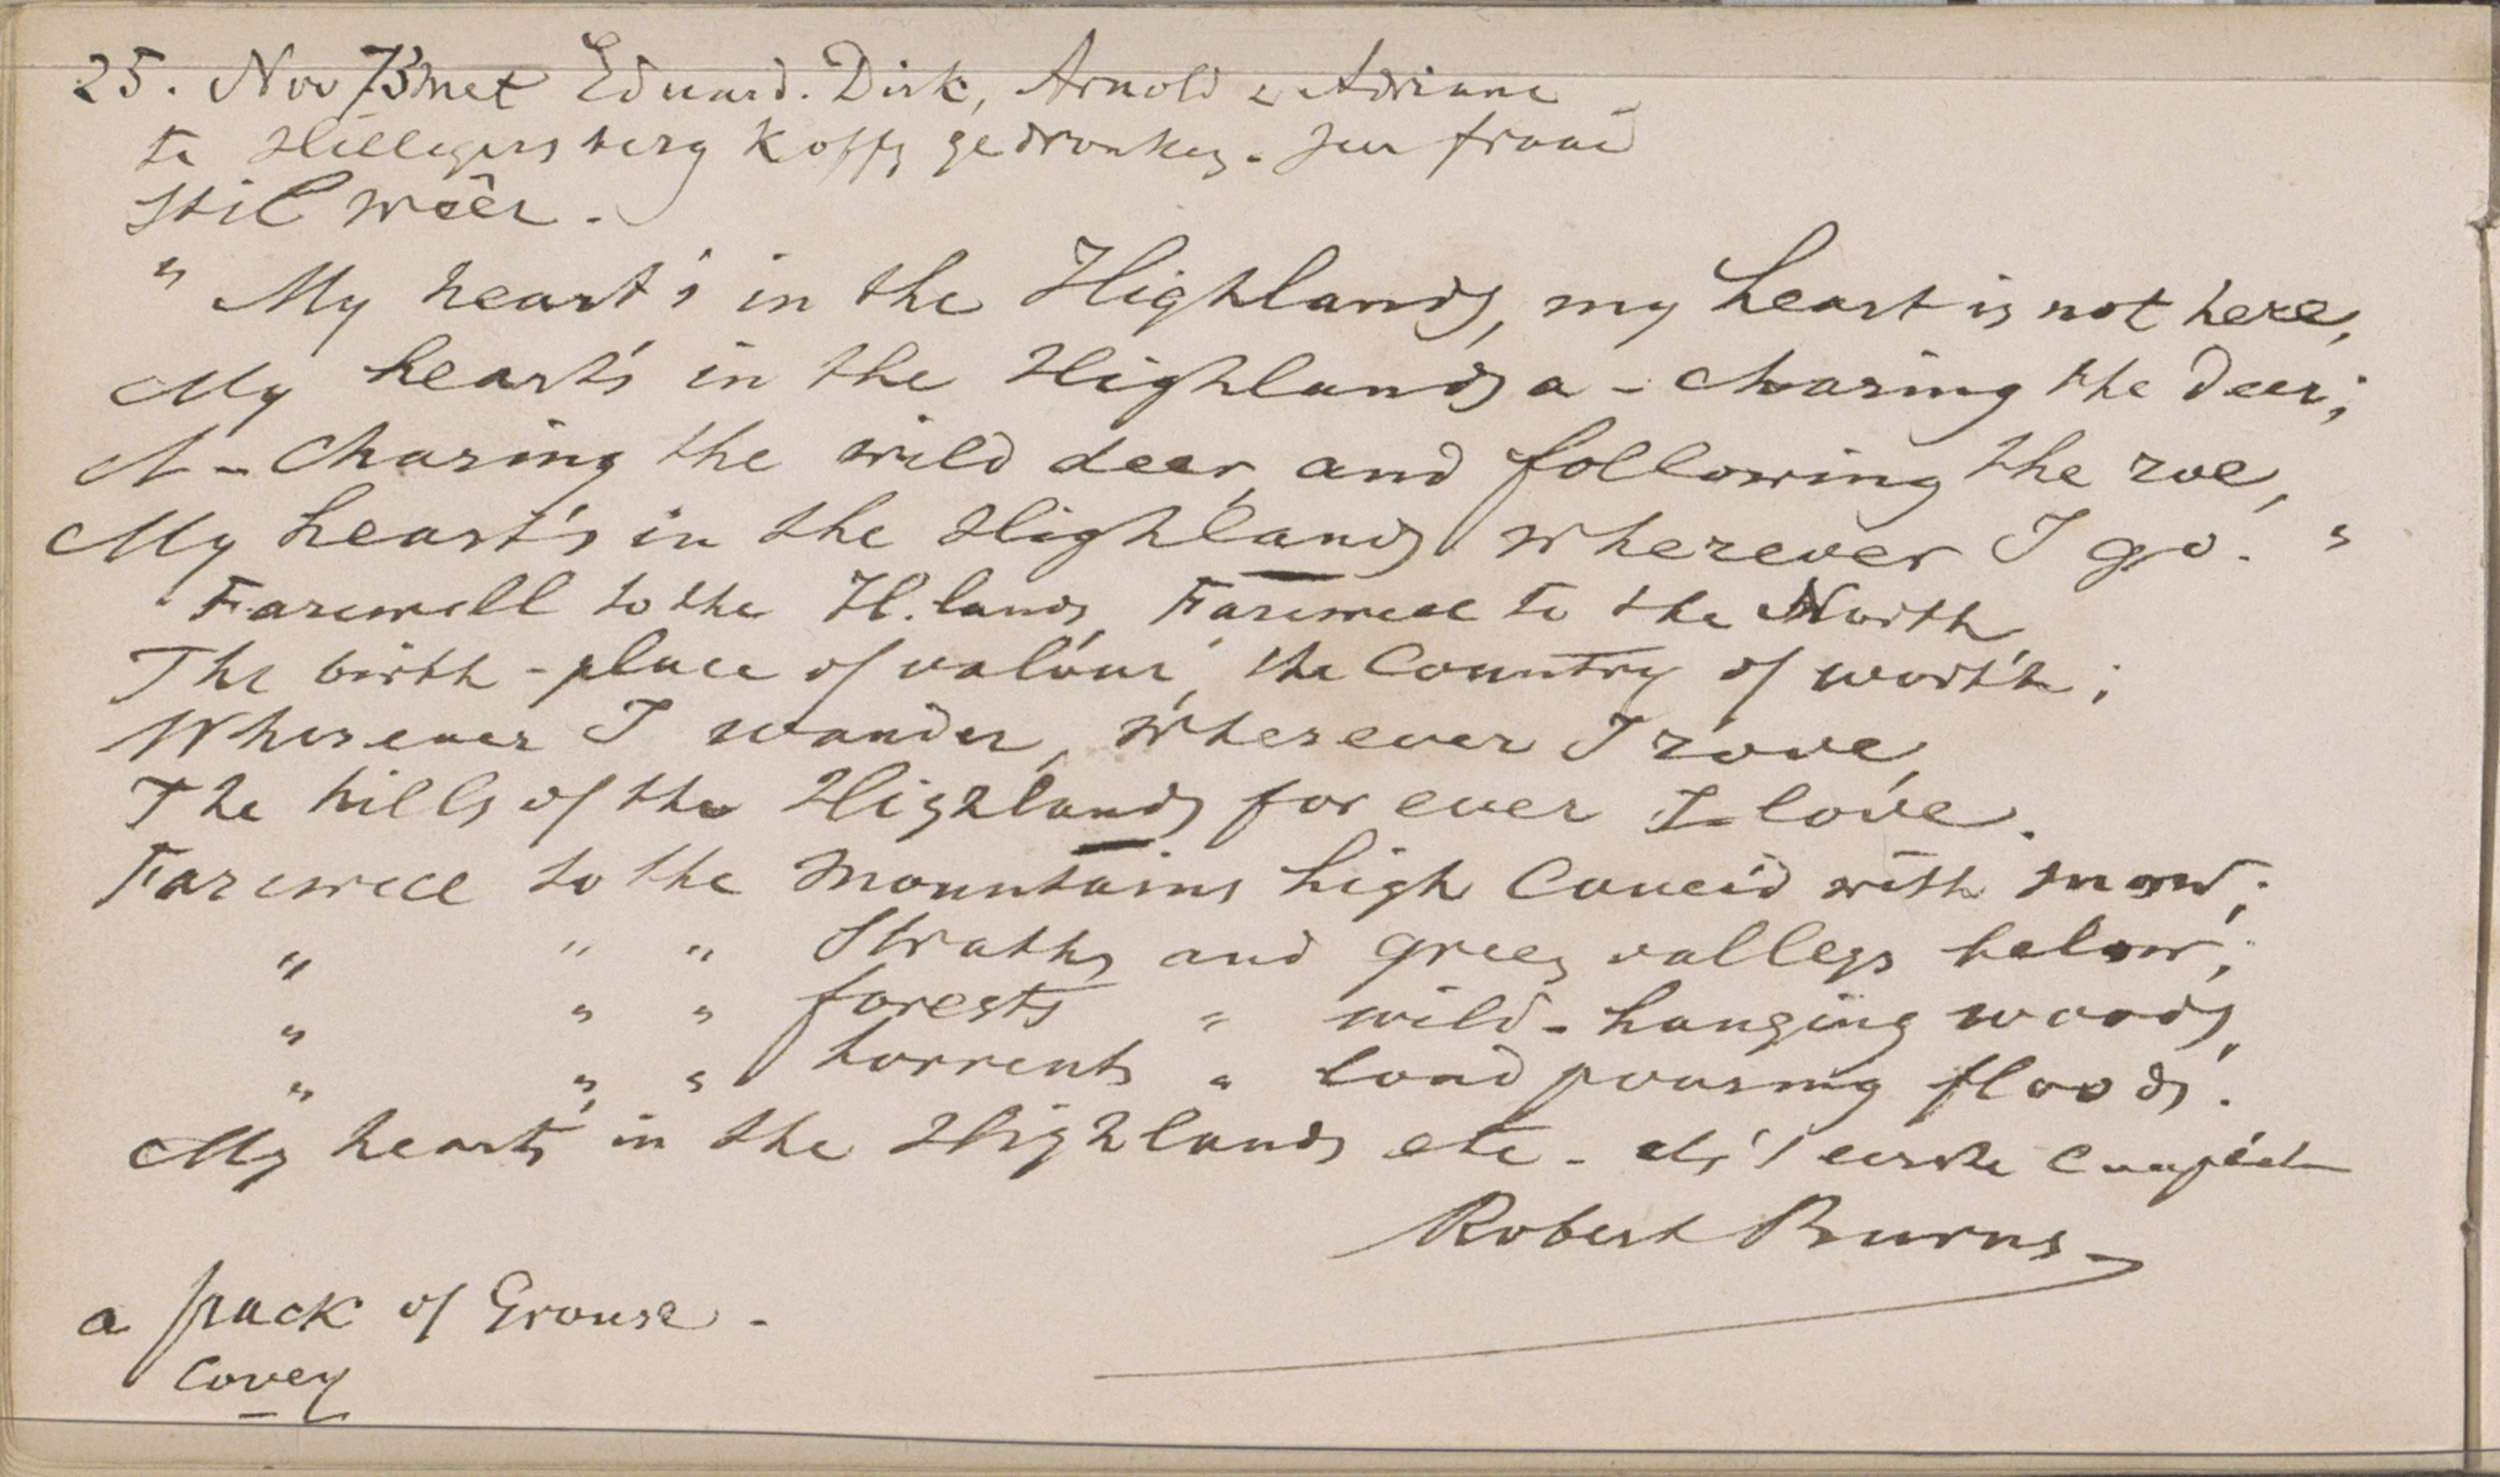 25. Nov 73 met Eduard. Dirk, Arnold & Adriane
te Hillegersberg Koffy gedronken. zeer fraai
stil wêer.
" My heart's in the Highlands, my heart is not here,
My heart's in the Highlands a-chasing the deer;
A-chasing the wild deer, and following the roe,
My heart's in the Highlands wherever I go. "
Farewell to the H.lands, Farewell to the North
The birth-place of valour, the Country of worth;
Wherever I wander, wherever I rove,
The hills of the Highlands for ever I love.
Farewell to the Mountains high Cover'd with snow;
" " " Straths and green valleys below;
" " " forests " wild-hanging woods,
" " " torrents " loud pouring floods.
My heart's in the Highlands etc. als 't eerste Couplet
Robert Burns
a pack of Grouse.
Covey